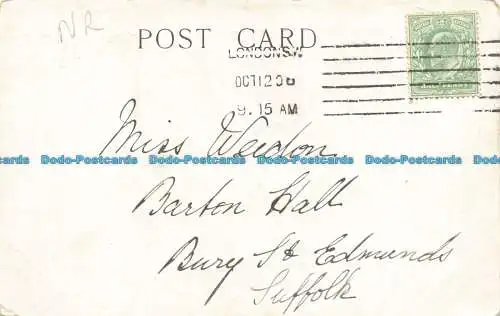 NR
POST CARD
LONDON S.W
OCT 12 06
9.15 AM
Miss Weedon
Barton Hall
Bury St Edmunds
Suffolk
Dodo-Postcards Dodo-Postcards Dodo-Postcards Dodo-Postcards Dodo-Postcards